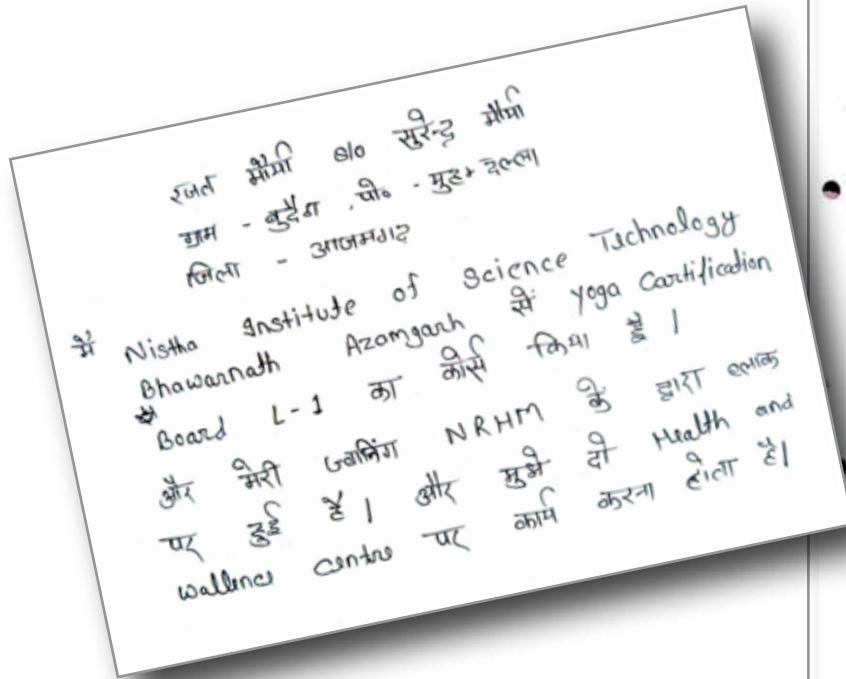 रजत मौर्या S/o सुरेन्द्र मौर्या
ग्राम - बुदैठा .पो० -
जिला - आजमगढ
मैं Nistha Institute of Science Technology
Bhawarnath Azamgarh से yoga Cartification
Board L-1 का कोर्स किया है |
और मेरी NRHM के द्वारा ब्लाक
पर हुई है | और मुझे दो Health and
wallence centre पर कार्य करना होता है|